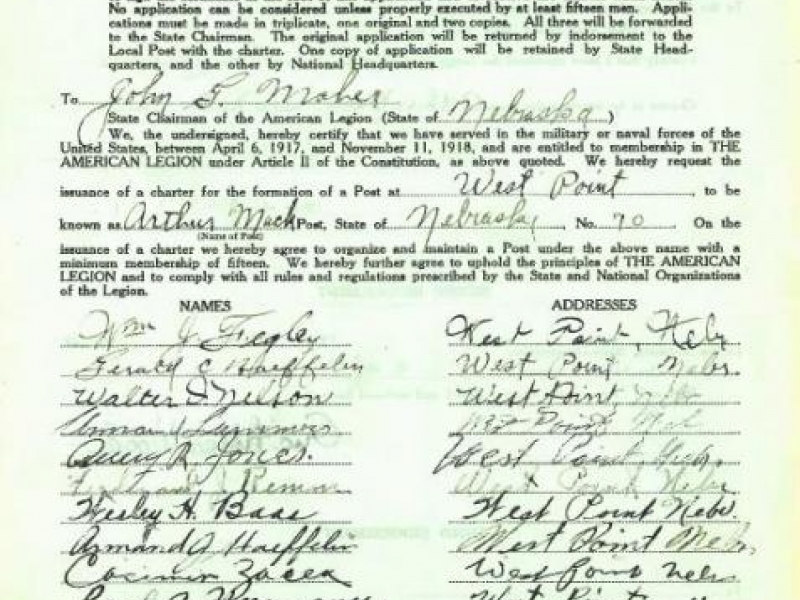 No application can be considered unless properly executed by at least fifteen men. Appli-
cations must be made in triplicate, one original and two copies. All three will be forwarded
to the State Chairman. The original application will be returned by indorsement to the
Local Post with the charter. One copy of application will be retained by State Head-
quarters, and the other by National Headquarters.
To John G. Maher
State Chairman of the American Legion (State of Nebraska)
We, the undersigned, hereby certify that we have served in the military or naval forces of the
United States, between April 6, 1917, and November 11, 1918, and are entitled to membership in THE
AMERICAN LEGION under Article II of the Constitution, as above quoted. We hereby request the
issuance of a charter for the formation of a Post at West Point, to be
known as Arthur Mack Post, State of Nebraska, No. 70 On the
(Name of Post)
issuance of a charter we hereby agree to organize and maintain a Post under the above name with a
minimum membership of fifteen. We hereby further agree to uphold the principles of THE AMERICAN
LEGION and to comply with all rules and regulations prescribed by the State and National Organizations
of the Legion.
NAMES ADDRESSES
Wm J. Fegley West Point, Nebr
Gerald C Haeffelin West Point Nebr.
Walter D. Nelson West Point Nebr
Point
R. Jones. West Point, Nebr.
West Point Nebr
Wesley H. Baas West Point Nebr.
Armand J Haeffelin West Point Nebr,
Casimir Zacek West Point Nebr
West Point